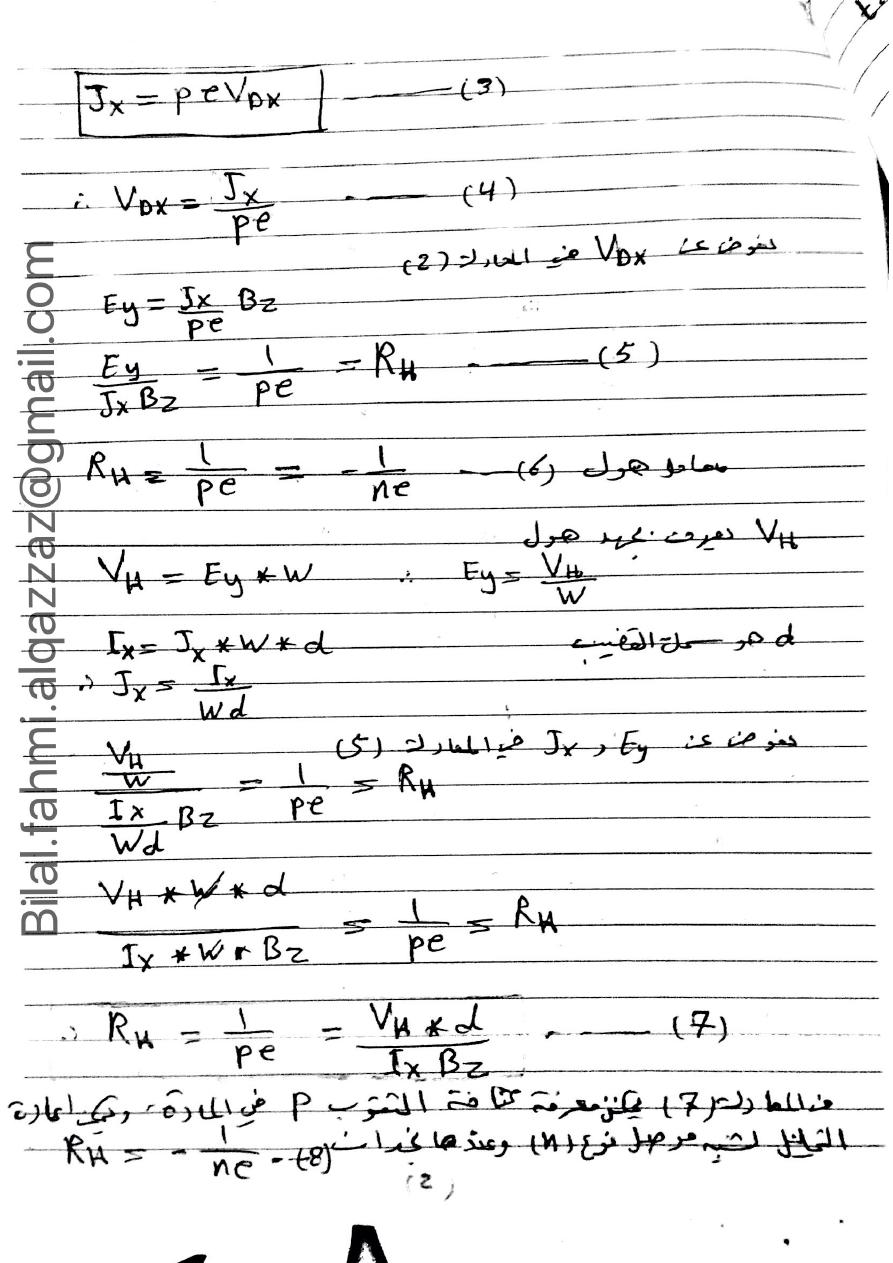 Jx = p e VDX ——— (3)
∴ VDX = Jx / pe ——— (4)
نعوض عن VDX في المعادلة (2)
Ey = Jx / pe Bz
Ey / Jx Bz = 1 / pe = RH ——— (5)
RH = 1 / pe = - 1 / ne ——— (6) معامل هول
VH تعرف بجهد هول
VH = Ey * W ∴ Ey = VH / W
Ix = Jx * W * d d هو سمك القضيب
∴ Jx = Ix / Wd
نعوض عن Ey و Jx في المعادلة (5)
VH / W / Ix / Wd Bz = 1 / pe = RH
VH * W * d / Ix * W * Bz = 1 / pe = RH
∴ RH = 1 / pe = VH * d / Ix Bz ——— (7)
من المعادلة (7) يمكن معرفة كثافة الثقوب P في المادة، ويمكن اعادة
التحليل لشبه موصل نوع (n) وعندها نجد ان
RH = - 1 / ne - (8)
(2)
Bilal.fahmi.alqazzaz@gmail.com